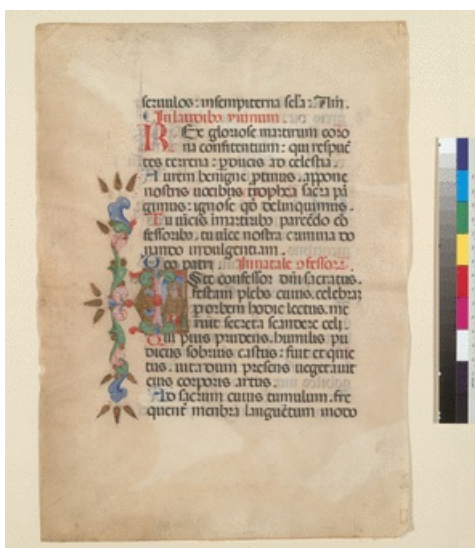 seruulos: in sempiterna scla: Am̅.
In laudibꝰ
Rex gloriose martirum coro
na confitentium: qui respuē
tes terena: ꝓducis ad celestia.
Aurem benigne ꝓtinus. appone
nostris uocibus trophea sacra pā
gimus: ignosce qđ delinquimus.
Tu uīcis ī martiribꝰ parcēdo cō
fessoribꝰ, tu uīce nostra crimina do
nando indulgentiam.
Deo patri. In natale ꝯfessorꝝ
Iste confessor dn̄i sacratus.
festam plebs cuius. celebrat
ꝑ orbem hodie letus. me
ruit secreta scandere celi.
Qui pius prudens. humilis pu
dicus sobrius castus: fuit et quie
tus. uita dum presens uegetauit
eius corporis artus.
Ad sacrum cuius tumulum. fre
quent̄ menbra languētum modo